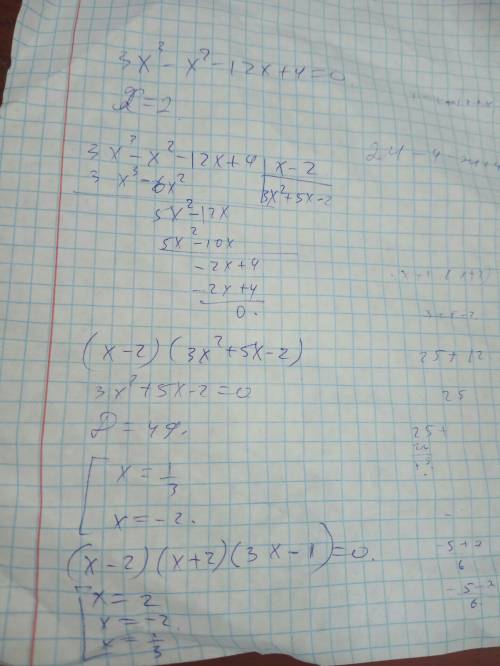 3x³ - x² - 12x + 4 = 0.
x = 2.
3x³ - x² - 12x + 4 | x - 2
3x³ - 6x² | 3x² + 5x - 2
5x² - 12x
5x² - 10x
- 2x + 4
- 2x + 4
0.
(x - 2)(3x² + 5x - 2)
3x² + 5x - 2 = 0
D = 49.
x = 1/3
x = -2.
(x - 2)(x + 2)(3x - 1) = 0.
x = 2
x = -2
x = 1/3
24 - 4 -
25 + 12
25
25 +
-5 + 7
6